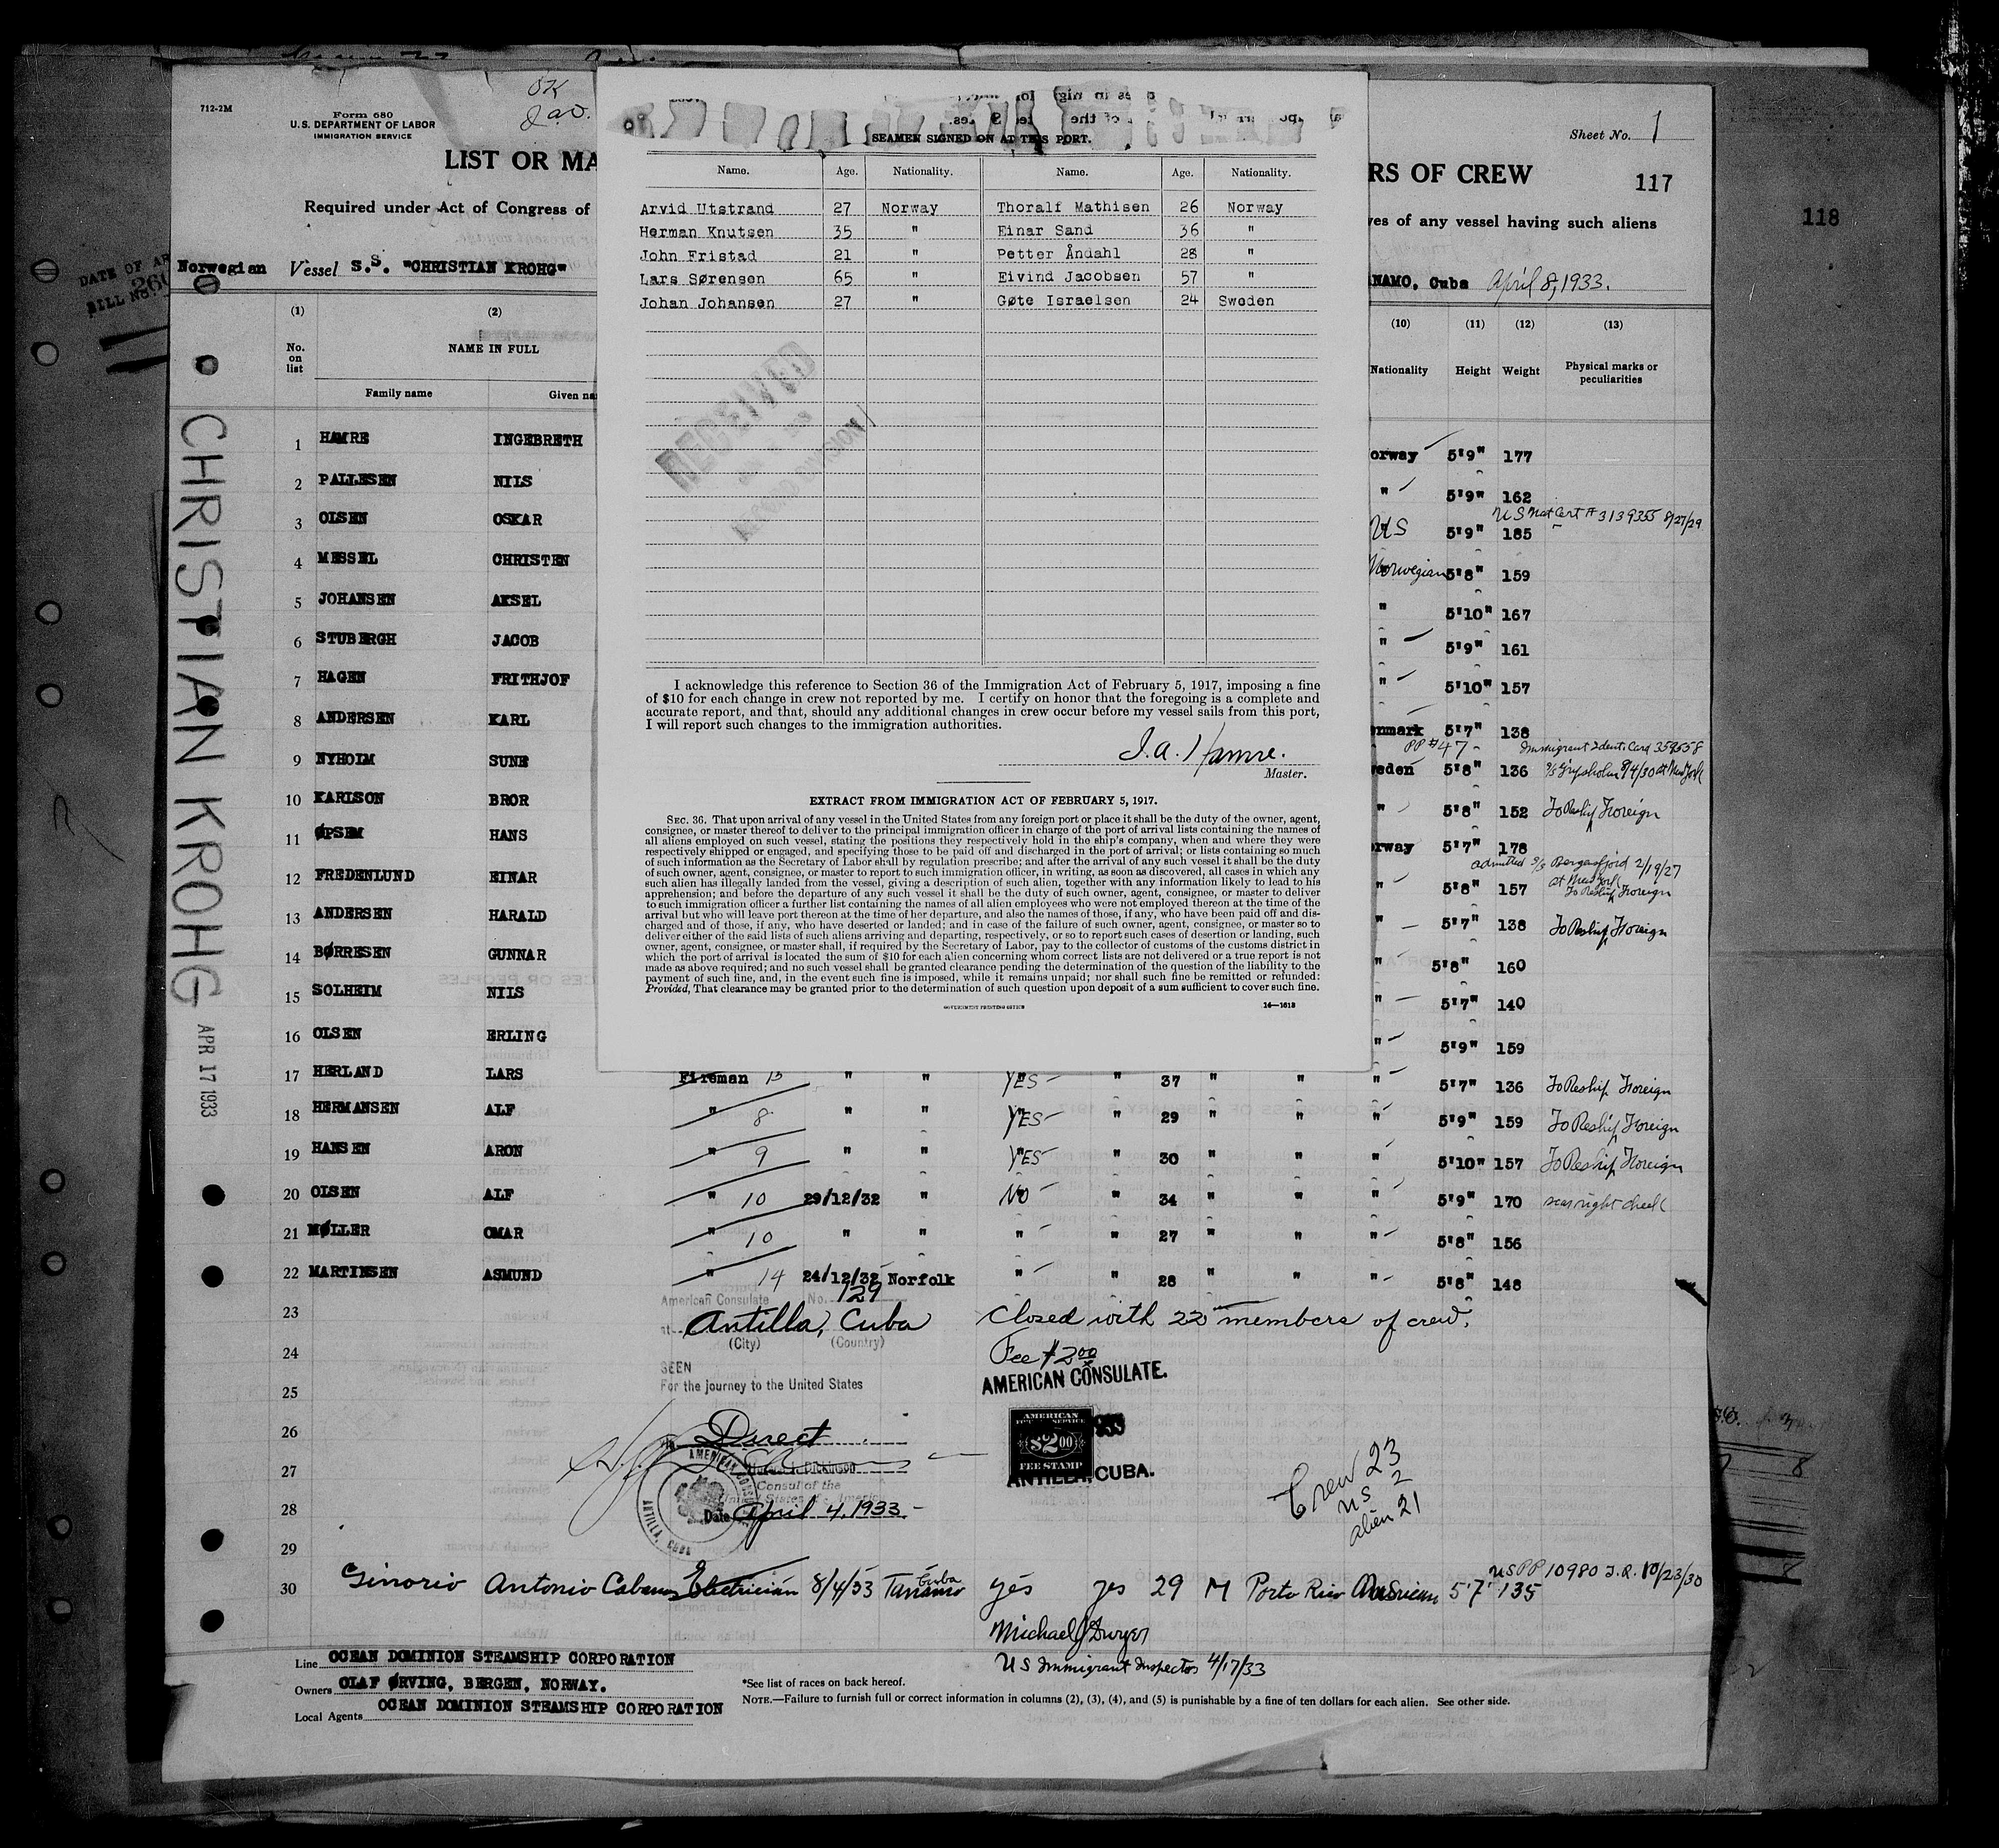 712-2M
Form 680
U.S. DEPARTMENT OF LABOR
IMMIGRATION SERVICE
OK
LIST OR MA
RS OF CREW
Sheet No. 1
117
118
Required under Act of Congress of
ves of any vessel having such aliens
DATE OF AR
BILL NO.
Norwegian Vessel S.S. "CHRISTIAN KROHG"
NAMO, Cuba April 8, 1933.
CHRISTIAN KROHG APR 17 1933
SEAMEN SIGNED ON AT THIS PORT.
Name. Age. Nationality. Name. Age. Nationality.
Arvid Utstrand 27 Norway Thoralf Mathisen 26 Norway
Herman Knutsen 35 " Einar Sand 36 "
John Fristad 21 " Petter Åndahl 28 "
Lars Sørensen 65 " Eivind Jacobsen 57 "
Johan Johansen 27 " Gøte Israelsen 24 Sweden
RECEIVED
I acknowledge this reference to Section 36 of the Immigration Act of February 5, 1917, imposing a fine
of $10 for each change in crew not reported by me. I certify on honor that the foregoing is a complete and
accurate report, and that, should any additional changes in crew occur before my vessel sails from this port,
I will report such changes to the immigration authorities.
I.A. Hamre.
Master.
EXTRACT FROM IMMIGRATION ACT OF FEBRUARY 5, 1917.
SEC. 36. That upon arrival of any vessel in the United States from any foreign port or place it shall be the duty of the owner, agent,
consignee, or master thereof to deliver to the principal immigration officer in charge of the port of arrival lists containing the names of
all aliens employed on such vessel, stating the positions they respectively hold in the ship's company, when and where they were
respectively shipped or engaged, and specifying those to be paid off and discharged in the port of arrival; or lists containing so much
of such information as the Secretary of Labor shall by regulation prescribe; and after the arrival of any such vessel it shall be the duty
of such owner, agent, consignee, or master to report to such immigration officer, in writing, as soon as discovered, all cases in which any
such alien has illegally landed from the vessel, giving a description of such alien, together with any information likely to lead to his
apprehension; and before the departure of any such vessel it shall be the duty of such owner, agent, consignee, or master to deliver
to such immigration officer a further list containing the names of all alien employees who were not employed thereon at the time of the
arrival but who will leave port thereon at the time of her departure, and also the names of those, if any, who have been paid off and dis-
charged and of those, if any, who have deserted or landed; and in case of the failure of such owner, agent, consignee, or master so to
deliver either of the said lists of such aliens arriving and departing, respectively, or so to report such cases of desertion or landing, such
owner, agent, consignee, or master shall, if required by the Secretary of Labor, pay to the collector of customs of the customs district in
which the port of arrival is located the sum of $10 for each alien concerning whom correct lists are not delivered or a true report is not
made as above required; and no such vessel shall be granted clearance pending the determination of the question of the liability to the
payment of such fine, and, in the event such fine is imposed, while it remains unpaid; nor shall such fine be remitted or refunded:
Provided, That clearance may be granted prior to the determination of such question upon deposit of a sum sufficient to cover such fine.
GOVERNMENT PRINTING OFFICE 14—1613
(1) (2) (10) (11) (12) (13)
No. on list NAME IN FULL Nationality Height Weight Physical marks or peculiarities
Family name Given na
1 HAMRE INGEBRETH orway 5'9" 177
2 PALLESEN NILS " 5'9" 162
US Nat Cert # 3139355 8/27/29
3 OLSEN OSKAR US 5'9" 185
4 MESSEL CHRISTEN Norwegian 5'8" 159
5 JOHANSEN AKSEL " 5'10" 167
6 STUBERGH JACOB " 5'9" 161
7 HAGEN FRITHJOF " 5'10" 157
8 ANDERSEN KARL enmark 5'7" 138
PP #47 Immigrant Identi Card 359558
9 NYHOLM SUNE weden 5'8" 136 S/S Gripsholm 9/4/30 at New York
10 KARLSON BROR " 5'8" 152 To Reship Foreign
11 ØPSEM HANS orway 5'7" 178
admitted S/S Bergensfjord 2/19/27
at New York
12 FREDENLUND EINAR " 5'8" 157 To Reship Foreign
13 ANDERSEN HARALD " 5'7" 138 To Reship Foreign
14 BØRRESEN GUNNAR " 5'8" 160
15 SOLHEIM NILS " 5'7" 140
16 OLSEN ERLING " 5'9" 159
17 HERLAND LARS Fireman 13 " " YES " 37 " " " 5'7" 136 To Reship Foreign
18 HERMANSEN ALF " 8 " " YES " 29 " " " 5'9" 159 To Reship Foreign
19 HANSEN ARON " 9 " " YES " 30 " " " 5'10" 157 To Reship Foreign
20 OLSEN ALF " 10 29/12/32 " NO " 34 " " " 5'9" 170 scar right cheek
21 MØLLER OMAR " 10 " " " " 27 " " " 5'8" 156
22 MARTINSEN ASMUND " 14 24/12/32 Norfolk " " 28 " " " 5'8" 148
American Consulate No. 129
23 at Antilla, Cuba Closed with 22 members of crew.
(City) (Country)
24 Fee $2.00
SEEN
25 For the journey to the United States AMERICAN CONSULATE.
26 Direct
AMERICAN
FEE SERVICE
$2.00
FEE STAMP
27
ANTILLA, CUBA.
Consul of the
United States of America
28 Date April 4, 1933
AMERICAN CONSULATE ANTILLA, CUBA
Crew 23
US 2
alien 21
29
USPP 10980 I.R. 10/23/30
30 Ginorio Antonio Cabanas Electrician 8/4/33 Tanamo Cuba yes yes 29 M Porto Rico American 5'7" 135
Michael J Dwyer
US Immigrant Inspector 4/17/33
Line OCEAN DOMINION STEAMSHIP CORPORATION
Owners OLAF ØRVING, BERGEN, NORWAY.
Local Agents OCEAN DOMINION STEAMSHIP CORPORATION
*See list of races on back hereof.
NOTE.—Failure to furnish full or correct information in columns (2), (3), (4), and (5) is punishable by a fine of ten dollars for each alien. See other side.